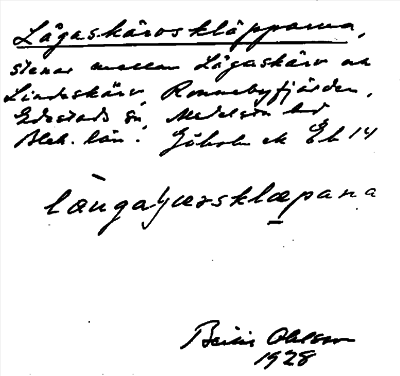 Lågaskärvsklåpparna,
stenar mellan Lågaskärv och
Lindeskärv, Ronnebyfjärden,
Edestads sn, Medelsta hd
Blek. län. Göholm ek Eb 14
længahærsklæpana
Ohlsson
1928